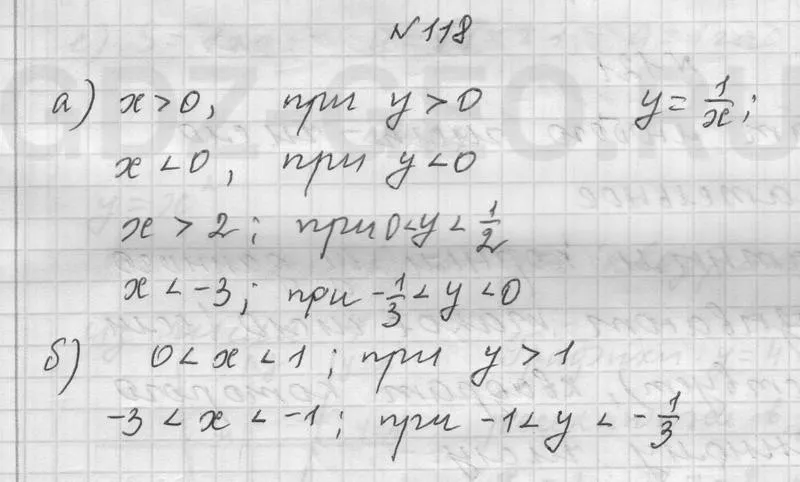 №118
а) x>0, при y>0 y=1/x;
x<0, при y<0
x>2; при 0<y<1/2
x<-3; при -1/3<y<0
б) 0<x<1; при y>1
-3<x<-1; при -1<y<-1/3